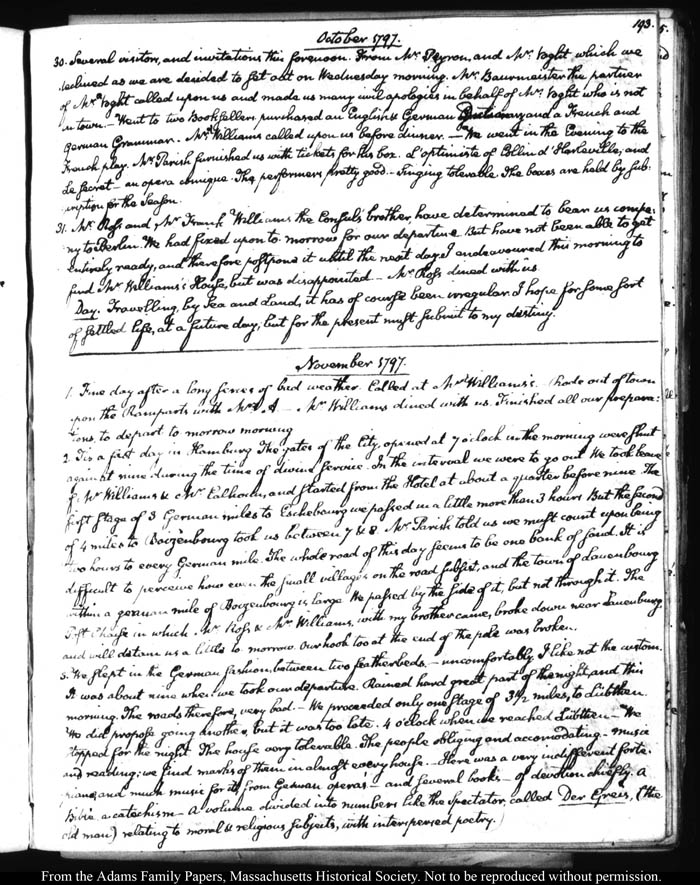 193.
October 1797.
30. Several visitors, and invitations this forenoon. From Mr. Peyron, and Mr. Voght which we
declined as we are decided to set out on Wednesday morning. Mr. Baurmeister the partner
of Mr. Voght called upon us and made us many civil apologies in behalf of Mr. Voght who is not
in town. — Went to two Booksellers purchased an English & German Dictionary, and a French and
German Grammar. Mr. Williams called upon us before dinner. — We went in the Evening to the
French play. Mr. Parish furnished us with tickets for his box. L'optimiste of Collin d'Harleville, and
Le Secret — an opera comique. The performers pretty good. — Singing tolerable. The boxes are held by sub-
scription for the Season.
31. Mr. Ross and Mr. Frank Williams the Consul's brother, have determined to bear us compa-
ny to Berlin. We had fixed upon to morrow for our departure. But have not been able to get
entirely ready, and therefore postpone it until the next day. I endeavoured this morning to
find Mr. Williams's House, but was disappointed — Mr. Ross dined with us.
Day. Travelling, by Sea and Land, it has of course been irregular. I hope for some sort
of settled life, at a future day, but for the present must submit to my destiny.
November 1797.
1. Fine day after a long series of bad weather. Called at Mr. Williams's. Rode out of town
upon the Ramparts with Mrs. A — Mr. Williams dined with us. Finished all our prepara-
tions, to depart to morrow morning
2. Tis a fast day in Hamburg. The gates of the City, opened at 7 o'clock in the morning were shut
against nine during the time of divine service. In the interval we were to go out. We took leave
of Mr. Williams & Mr. Calhoun, and started from the Hotel at about a quarter before nine. The
first stage of 3 German miles to Eschebourg we passed in a little more than 3 hours. But the second
of 4 miles to Boizenbourg took us between 7 & 8. Mr. Parish told us we must count upon being
two hours to every German mile. The whole road of this day seems to be one bank of sand. It is
difficult to perceive how even the small villages on the road subsist, and the town of Lauenbourg
within a german mile of Boizenbourg is large. We passed by the side of it, but not through it. The
Post Chaise in which Mr. Ross & Mr. Williams, with my brother came, broke down near Lauenburg,
and will detain us a little to morrow. Our hook too at the end of the pole was broken.
3. We slept in the German fashion, between two featherbeds, — uncomfortably. I like not the custom.
It was about nine when we took our departure. Rained hard great part of the night, and this
morning. The roads therefore, very bad. — We proceeded only one stage of 3 1/2 miles, to Lübtheen.
We did propose going another, but it was too late. 4 o'clock when we reached Lübtheen — We
stopped for the night. The house very tolerable. The people obliging and accomodating — music
and reading; we find marks of them in almost every house. Here was a very indifferent forte-
piano, and much music for it, from German operas — and several books — of devotion chiefly, a
Bible, a catechism — a volume divided into numbers like the Spectator, called Der Greis, (the
old man) relating to moral & religious subjects, with interspersed poetry.
From the Adams Family Papers, Massachusetts Historical Society. Not to be reproduced without permission.